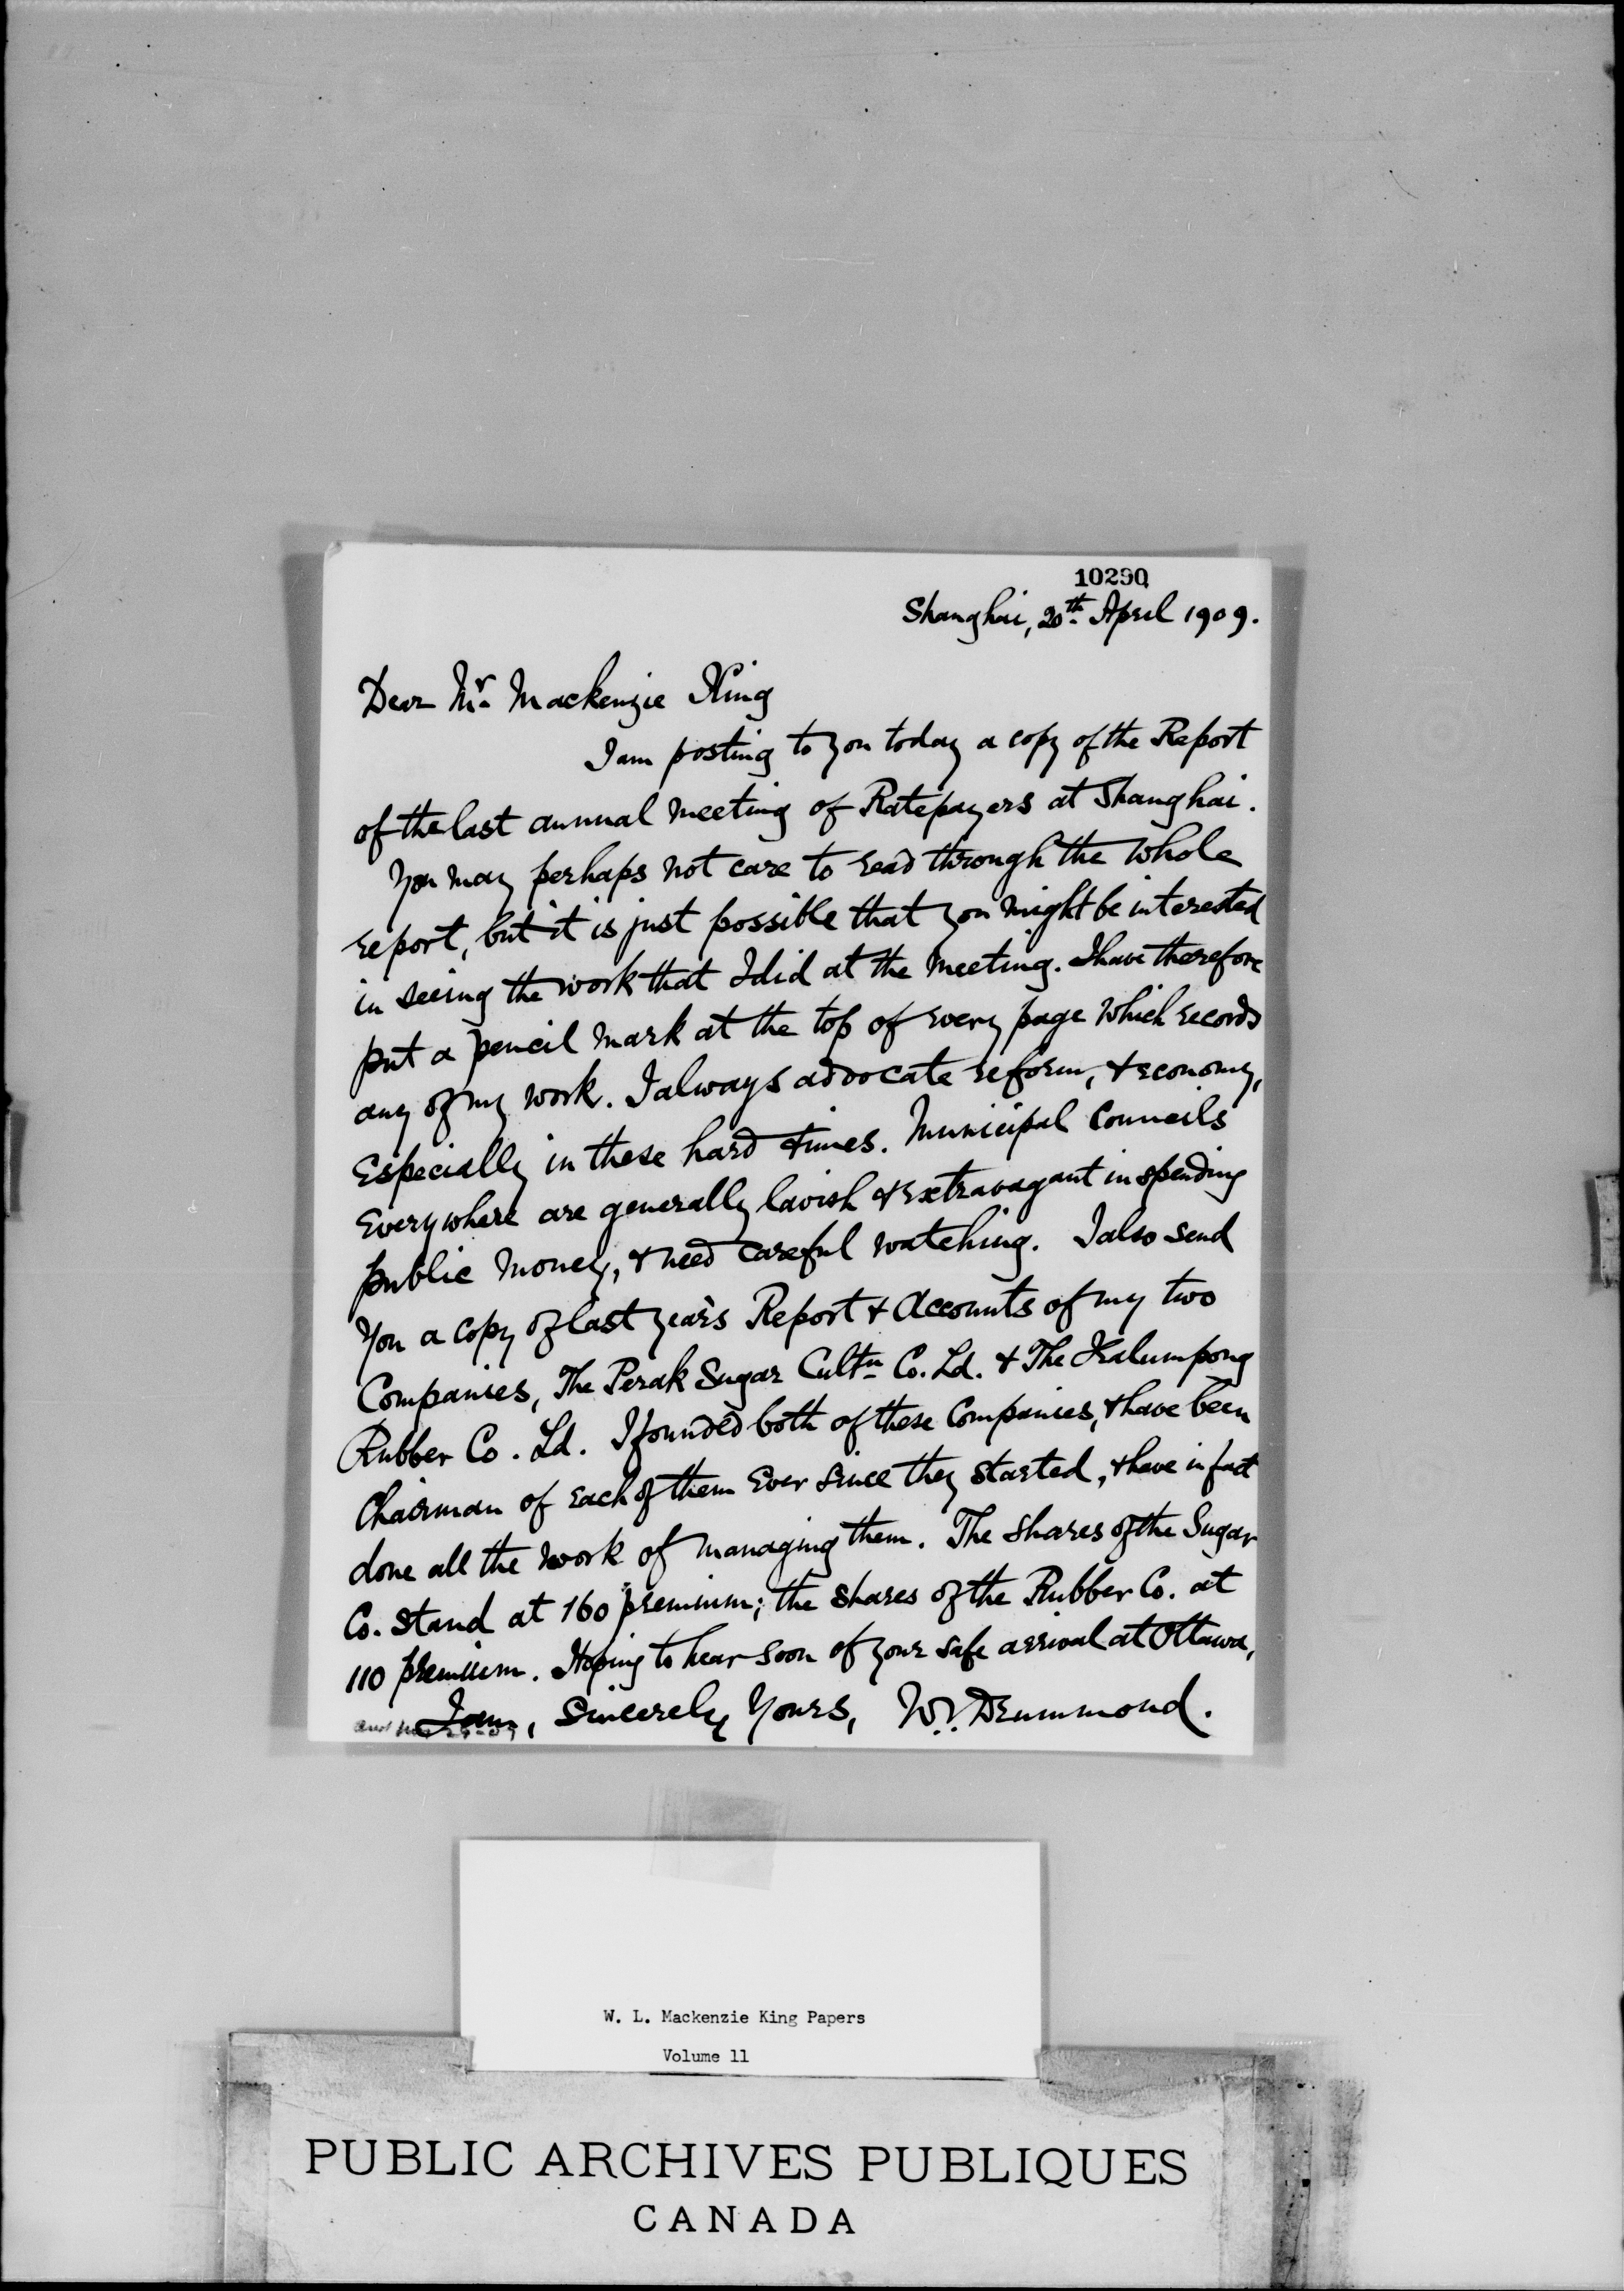 10290
Shanghai, 20th. April 1909.
Dear Mr. Mackenzie King
I am posting to you today a copy of the Report
of the last annual meeting of Ratepayers at Shanghai.
You may perhaps not care to read through the whole
report, but it is just possible that you might be interested
in seeing the work that I did at the meeting. I have therefore
put a pencil mark at the top of every page which records
any of my work. I always advocate reform, & economy,
Especially in these hard times. Municipal Councils
Everywhere are generally lavish & extravagant in spending
public money, & need careful watching. I also send
you a copy of last year's Report & Accounts of my two
Companies, The Perak Sugar Cultn. Co. Ld. & The Kalumpong
Rubber Co. Ld. I founded both of these Companies, & have been
Chairman of each of them Ever since they started, & have in fact
done all the work of managing them. The shares of the Sugar
Co. stand at 160 premium; the shares of the Rubber Co. at
110 premium. Hoping to hear soon of your safe arrival at Ottawa,
I am, Sincerely Yours, W.V. Drummond.
W. L. Mackenzie King Papers
Volume 11
PUBLIC ARCHIVES PUBLIQUES
CANADA